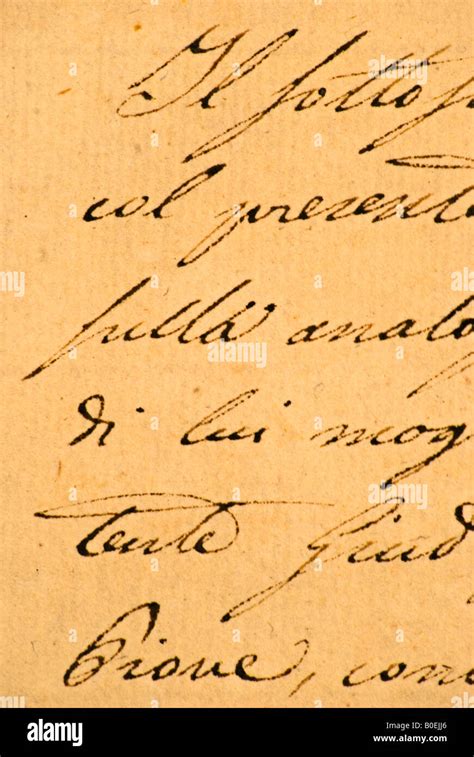 Il sottos
col present
sulla analo
di lui mog
tente Giud
Piove, con
alamy
Image ID: B0EJJ6
www.alamy.com